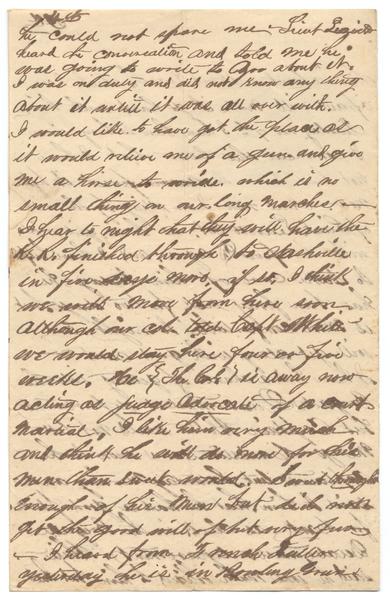 he could not spare me Lieut
heard the conversation and told me he
was going to write to about it.
I was on duty and did not know any thing
about it untill it was all over with.
I would like to have got the place as
it would relieve me of a gun and give
me a horse to ride. which is no
small thing in our long marches —
I hear to night that they will have the
R.R. finished through to Nashville
in five days more, if so, I think
we will move from here soon
although our col. told Capt White
we would stay here four or five
weeks. He (The Col.) is away now
acting as Judge Advocate of a court
Marial. I like him very much
and think he will do more for his
men than would. thought
enough of his men but did not
get the good will of but very few
— I heard from Fuller
yesterday he is in Bowling Green